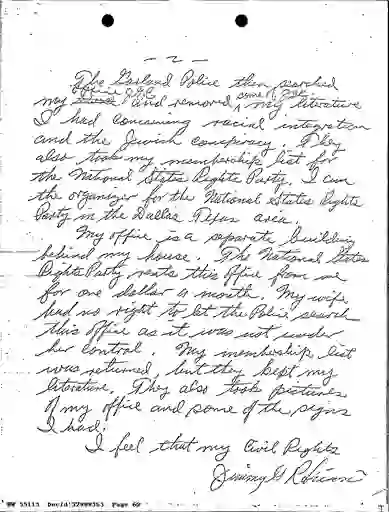 - 2 -
The Garland Police then searched
office J.G.R. some J.G.R.
my house and removed my literature
I had concerning racial integration
and the Jewish conspiracy. They
also took my membership list for
the National States Rights Party. I am
the organizer for the National States Rights
Party in the Dallas Texas area.
My office is a separate building
behind my house. The National States
Rights Party rents this office from me
for one dollar a month. My wife
had no right to let the Police search
this office as it was not under
her control. My membership list
was returned, but they kept my
literature. They also took pictures
of my office and some of the signs
I had.
I feel that my Civil Rights
Jimmy G Robinson
Page 62